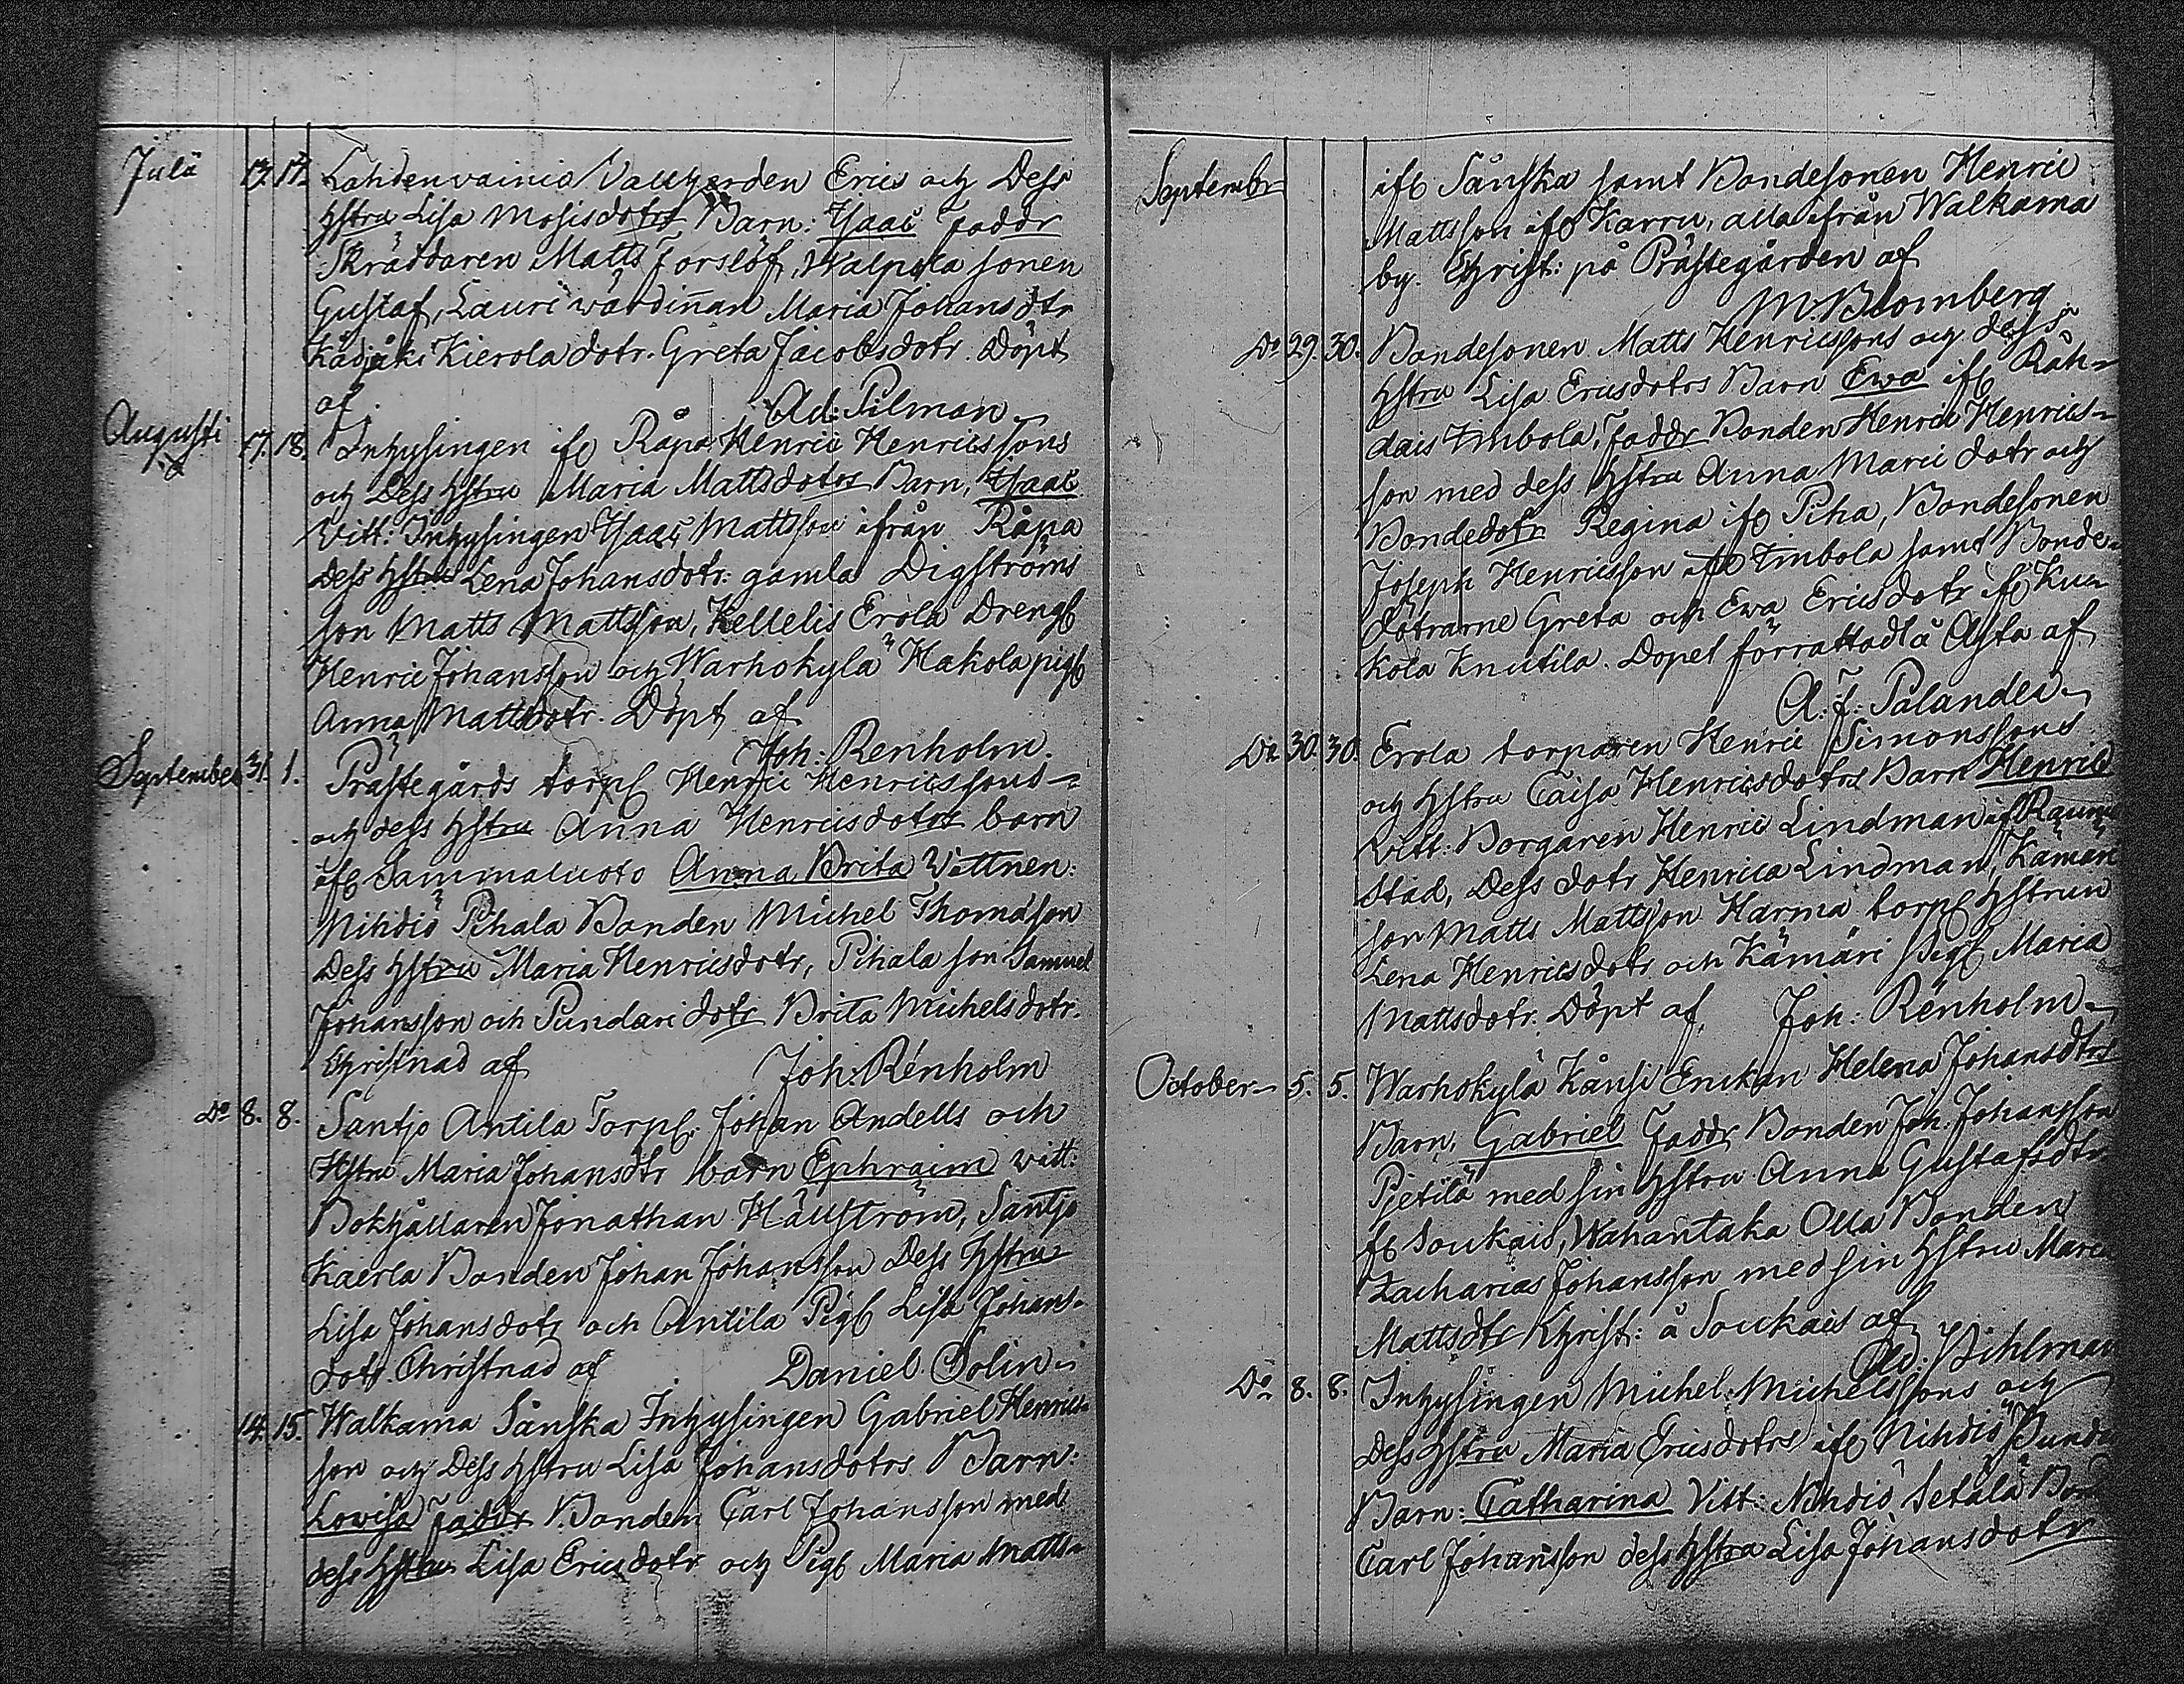 Julii 17. 17. Lahdenvainio Vallgerden Erics och Dess
Hstru Lisa Mosisdotrs Barn: Isaac Faddr
Skräddaren Matts Forslöf, Walpola sonen
Gustaf, Lauri wärdinnan Maria Johansdtr
Kierola dotr. Greta Jacobsdotr. Döpt
af Ad: Pilman
Augusti 17. 18. Inhysingen ifr Räpa Henric Henricssons
och Dess Hstru Maria Mattsdotrs Barn, Isaac
Vitt: Inhysingen Isaac Mattsson ifrån Räpa
Dess Hstru Lena Johansdotr: gamla Digströms
son Matts Mattsson, Kellelis Erola Drengl
Henric Johansson och Warhokylä Hakola pigl
Anna Mattsdotr. Döpt af
Joh: Renholm.
September 31. 1. Prästegårds torpl Henric Henricssons
och dess Hstru Anna Henricsdotrs barn
ifl Sammalusto Anna Brita Vittnen:
Nihdiö Pihala Bonden Michel Thomasson
Dess Hstru Maria Henricsdotr, Pihala son Samuel
Johansson och Pundari dotr Brita Michelsdotr.
Christnad af Joh: Rénholm
Do 8. 8. Santjo Antila Torpl: Johan Andells och
Hstru Maria Johansdtr barn Ephraim vitt:
Bokhållaren Jonathan Hällström, Santjo
Kaerla Bonden Johan Johansson Dess Hstru
Lisa Johansdotr och Antila Pigl Lisa Johans-
dotr. Christnad af Daniel Solin
14. 15. Walkama Sänska Inhysingen Gabriel Henrics-
son och Dess Hstru Lisa Johansdotrs Barn:
Lovisa Faddr Bonden Carl Johansson med
dess Hstru Lisa Ericsdotr och Pigl Maria Matts-
September ifl Sänska samt Bondesonen Henric
Mattsson ifl Karru, alla ifrån Walkama
by. Christ: på Prästegården af
M. Blomberg
Do 29. 30. Bondesonen Matts Henricssons och dess
Hstru Lisa Ericsdotrs Barn Ewa ifl Räh-
dais Imbola, Faddr Bonden Henric Henrics-
son med dess Hstru Anna Marie dotr och
Bondedotr Regina ifl Piha, Bondesonen
Joseph Henricsson ifl Imbola samt Bonde-
dötrarne Greta och Ewa Ericsdotr ifl Ku-
kola Knutila. Dopet förrättadt å Asta af
A: F: Palander
Do 30. 30. Erola torparen Henric Simonssons
och Hstru Caisa Henricsdotrs Barn Henric
Vitt: Borgaren Henric Lindman ifl Raumo
Stad, Dess dotr Henrica Lindman, Kämäri
son Matts Mattsson Härmä torpl Hstrun
Lena Henricsdotr och Kämäri Pigl Maria
Mattsdotr. Döpt af Joh: Rénholm
October 5. 5. Warhokylä Känsi Enkan Helena Johansdtrs
Barn, Gabriel Faddr Bonden Joh. Johansson
Pjetilä med sin Hstru Anna Gustafsdtr
fl Soukais, Wahantaka Olla Bonden
Zacharias Johansson med sin Hstru Maria
Mattsdtr Christ: å Soukais af
Ad: Vihlman
Do 8. 8. Inhysingen Michel Michelssons och
Dess Hstru Maria Ericsdotrs ifl Nihdiö Punda
Barn: Catharina Vitt: Nihdiö Setälä Bond
Carl Johansson dess Hstru Lisa Johansdotr